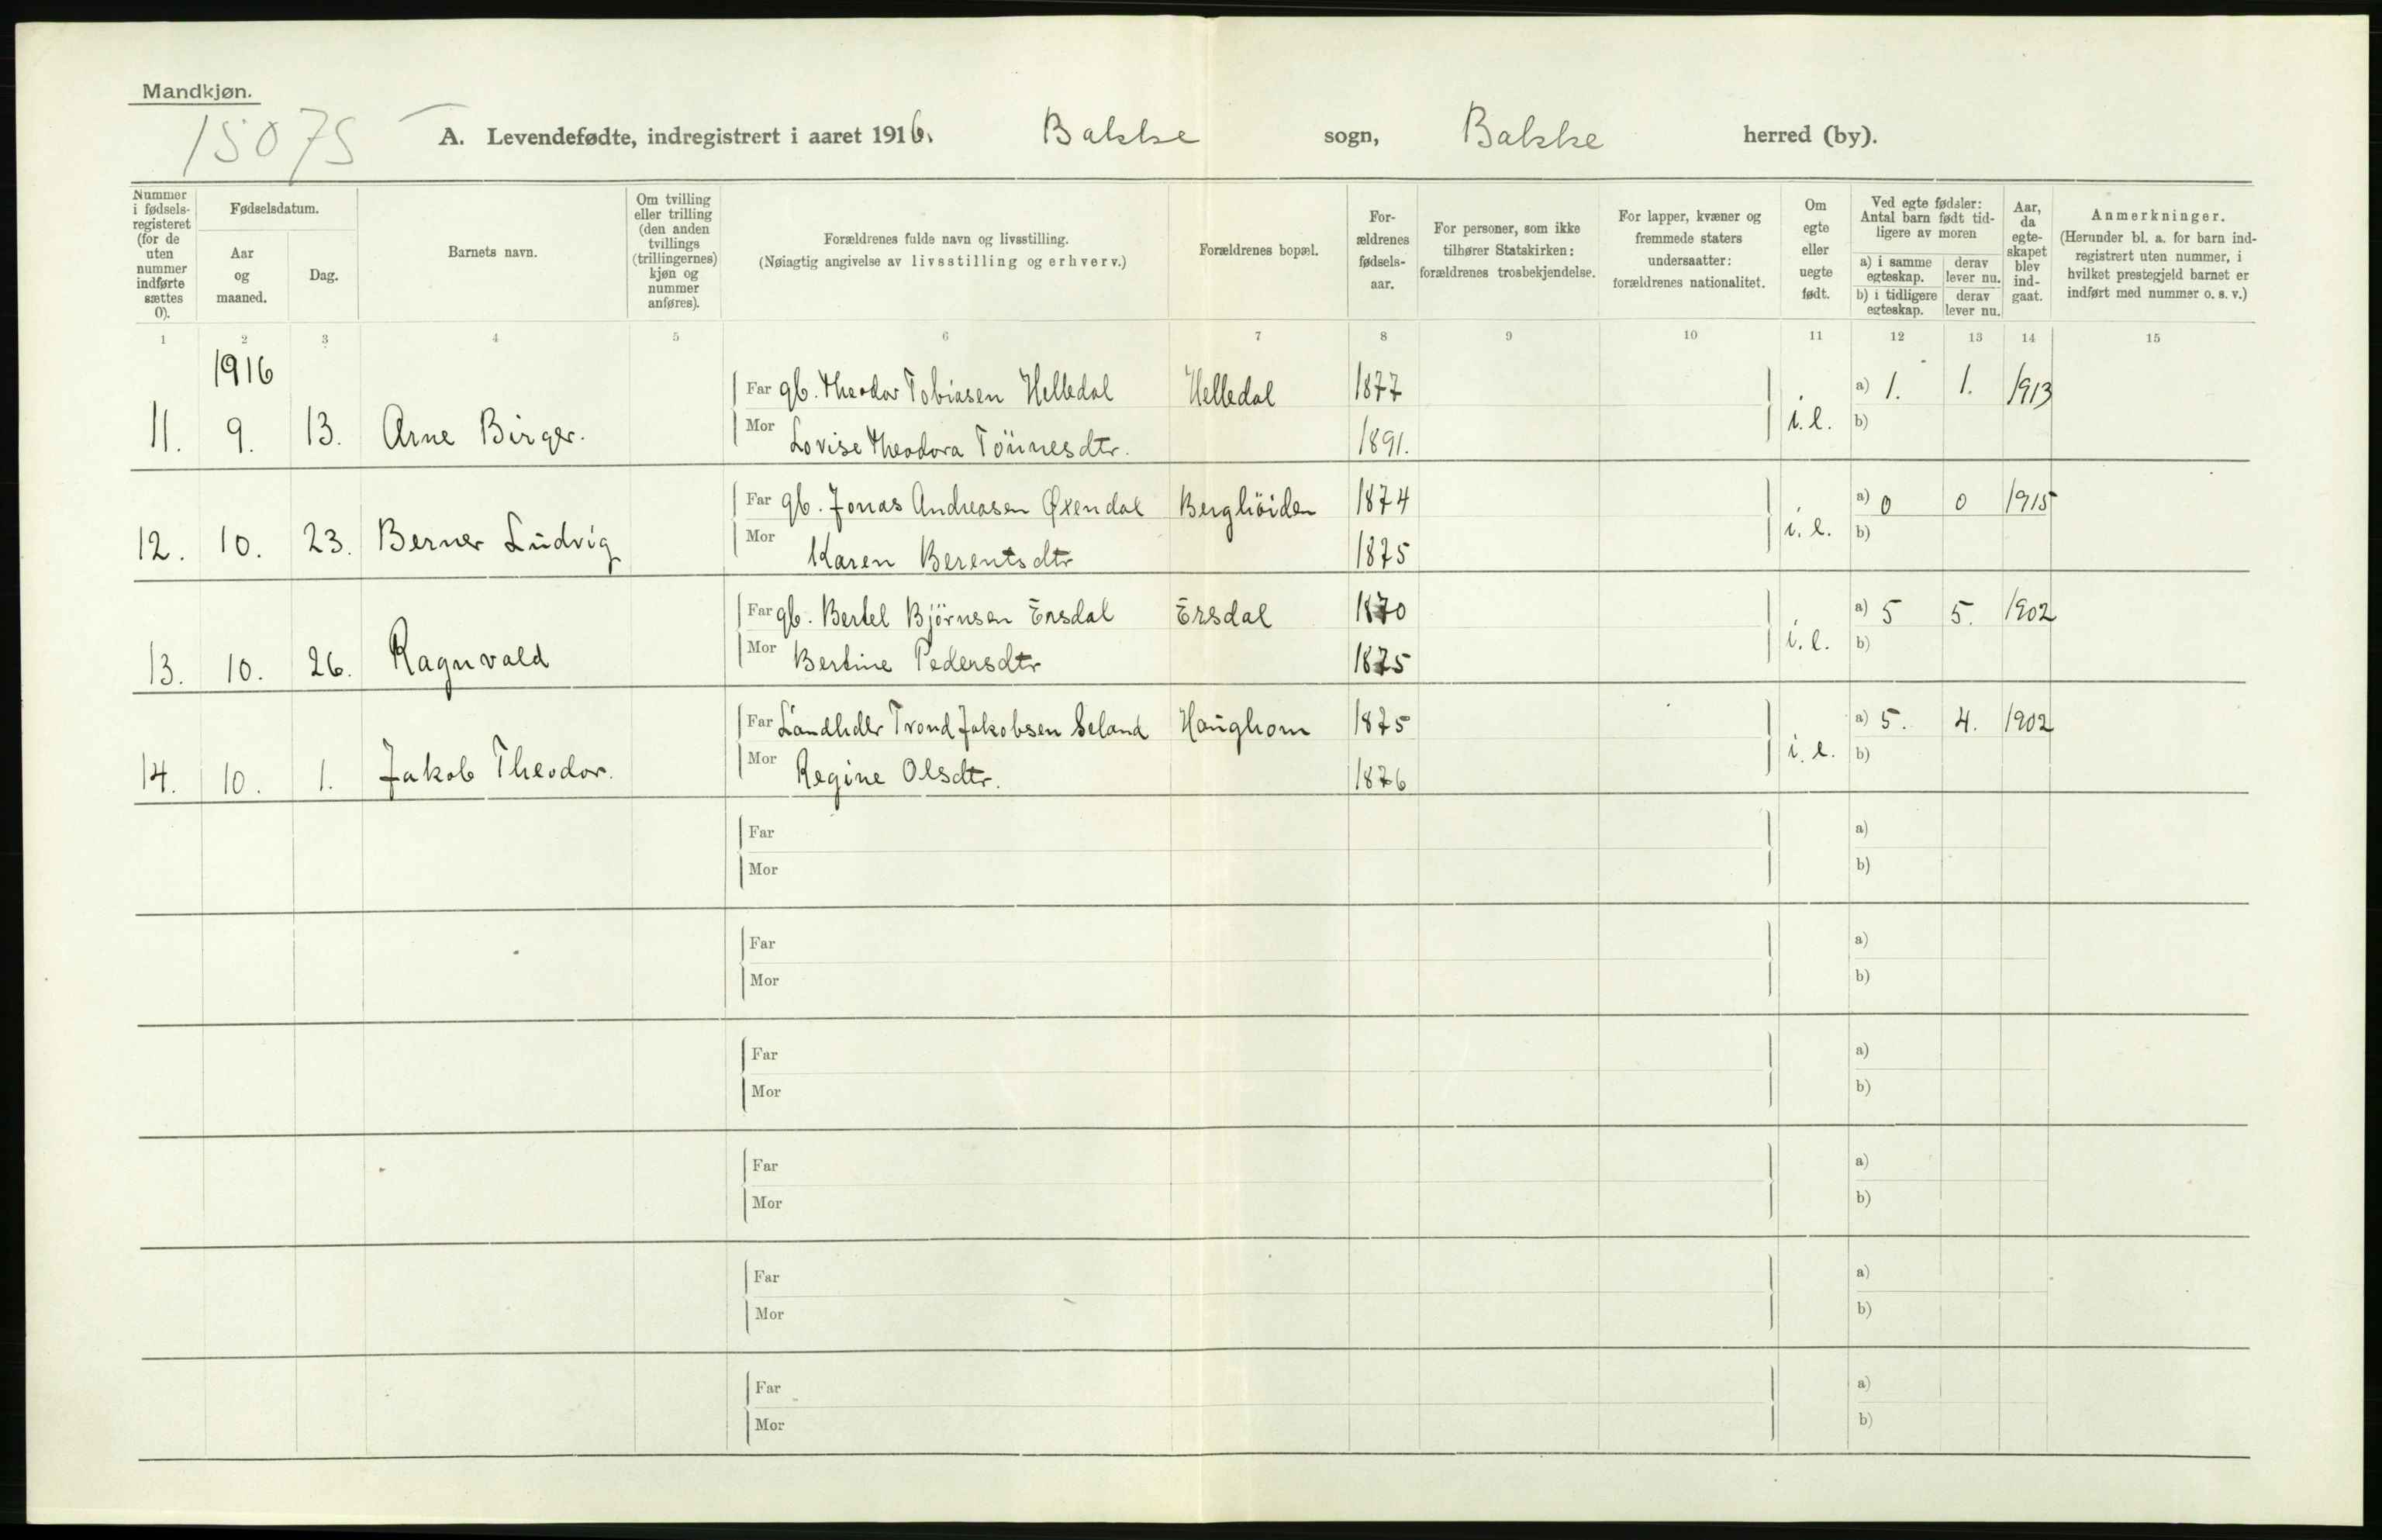 Mandkjøn.
15075
A. Levendefødte, indregistrert i aaret 1916. Bakke sogn, Bakke herred (by).
Nummer i fødsels-registeret (for de uten nummer indførte sættes 0).
Fødselsdatum.
Aar og maaned.
Dag.
Barnets navn.
Om tvilling eller trilling (den anden tvillings (trillingernes) kjøn og nummer anføres).
Forældrenes fulde navn og livsstilling.
(Nøiagtig angivelse av livsstilling og erhverv.)
Forældrenes bopæl.
For-ældrenes fødsels-aar.
For personer, som ikke tilhører Statskirken: forældrenes trosbekjendelse.
For lapper, kvæner og fremmede staters undersaatter: forældrenes nationalitet.
Om egte eller uegte født.
Ved egte fødsler: Antal barn født tid-ligere av moren
a) i samme egteskap. derav lever nu.
b) i tidligere egteskap. derav lever nu.
Aar, da egte-skapet blev ind-gaat.
Anmerkninger.
(Herunder bl. a. for barn ind-registrert uten nummer, i hvilket prestegjeld barnet er indført med nummer o. s. v.)
1 2 3 4 5 6 7 8 9 10 11 12 13 14 15
1916
Far gb. Theodor Tobiasen Helledal Helledal 1877 a) 1. 1. 1913
11. 9. 13. Arne Birger. Mor Lovise Theodora Tönnesdtr. 1891. i.e. b)
Far gb. Jonas Andreasen Øxendal Berghöiden 1874 a) 0 0 1915
12. 10. 23. Berner Ludvig Mor Karen Berentsdtr 1875 i.e. b)
Far gb. Bertel Björnsen Ersdal Ersdal 1870 a) 5 5. 1902
13. 10. 26. Ragnvald Mor Bertine Pedersdtr 1875 i.e. b)
Far Landhdlr Trond Jakobsen Seland Haughom 1875 a) 5. 4. 1902
14. 10. 1. Jakob Theodor. Mor Regine Olsdtr. 1876 i.e. b)
Far a)
Mor b)
Far a)
Mor b)
Far a)
Mor b)
Far a)
Mor b)
Far a)
Mor b)
Far a)
Mor b)